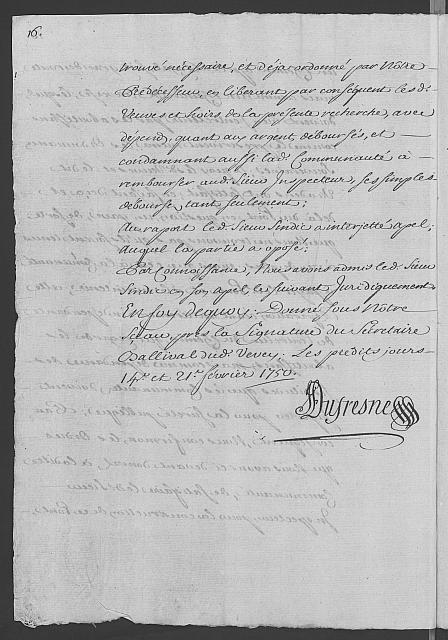 16.
trouvé nécessaire, et déja ordonné par Nôtre
Prédécesseur, en liberant par conséquent les de:
Veuves et hoirs de la présente recherche, avec
dépend, quant aux argent, déboursés, et
condamnant aussi lad: Communauté à
rembourser aud: Sieur Inspecteur, ses simples
débourse, tant seulement;
Au raport led: Sieur Sindic a interjetté apel;
auquel la partie a oposé;
Par Connoissance, Nous avons admis led: Sieur
Sindic en son apel, le suivant Juridiquement
En foy dequoy; Donné sous Nôtre
Sceau, près la Signature du Secretaire
Ballival dud: Vevey; Les predits jours
14.e et 21.e fevrier 1750.
Dufresne